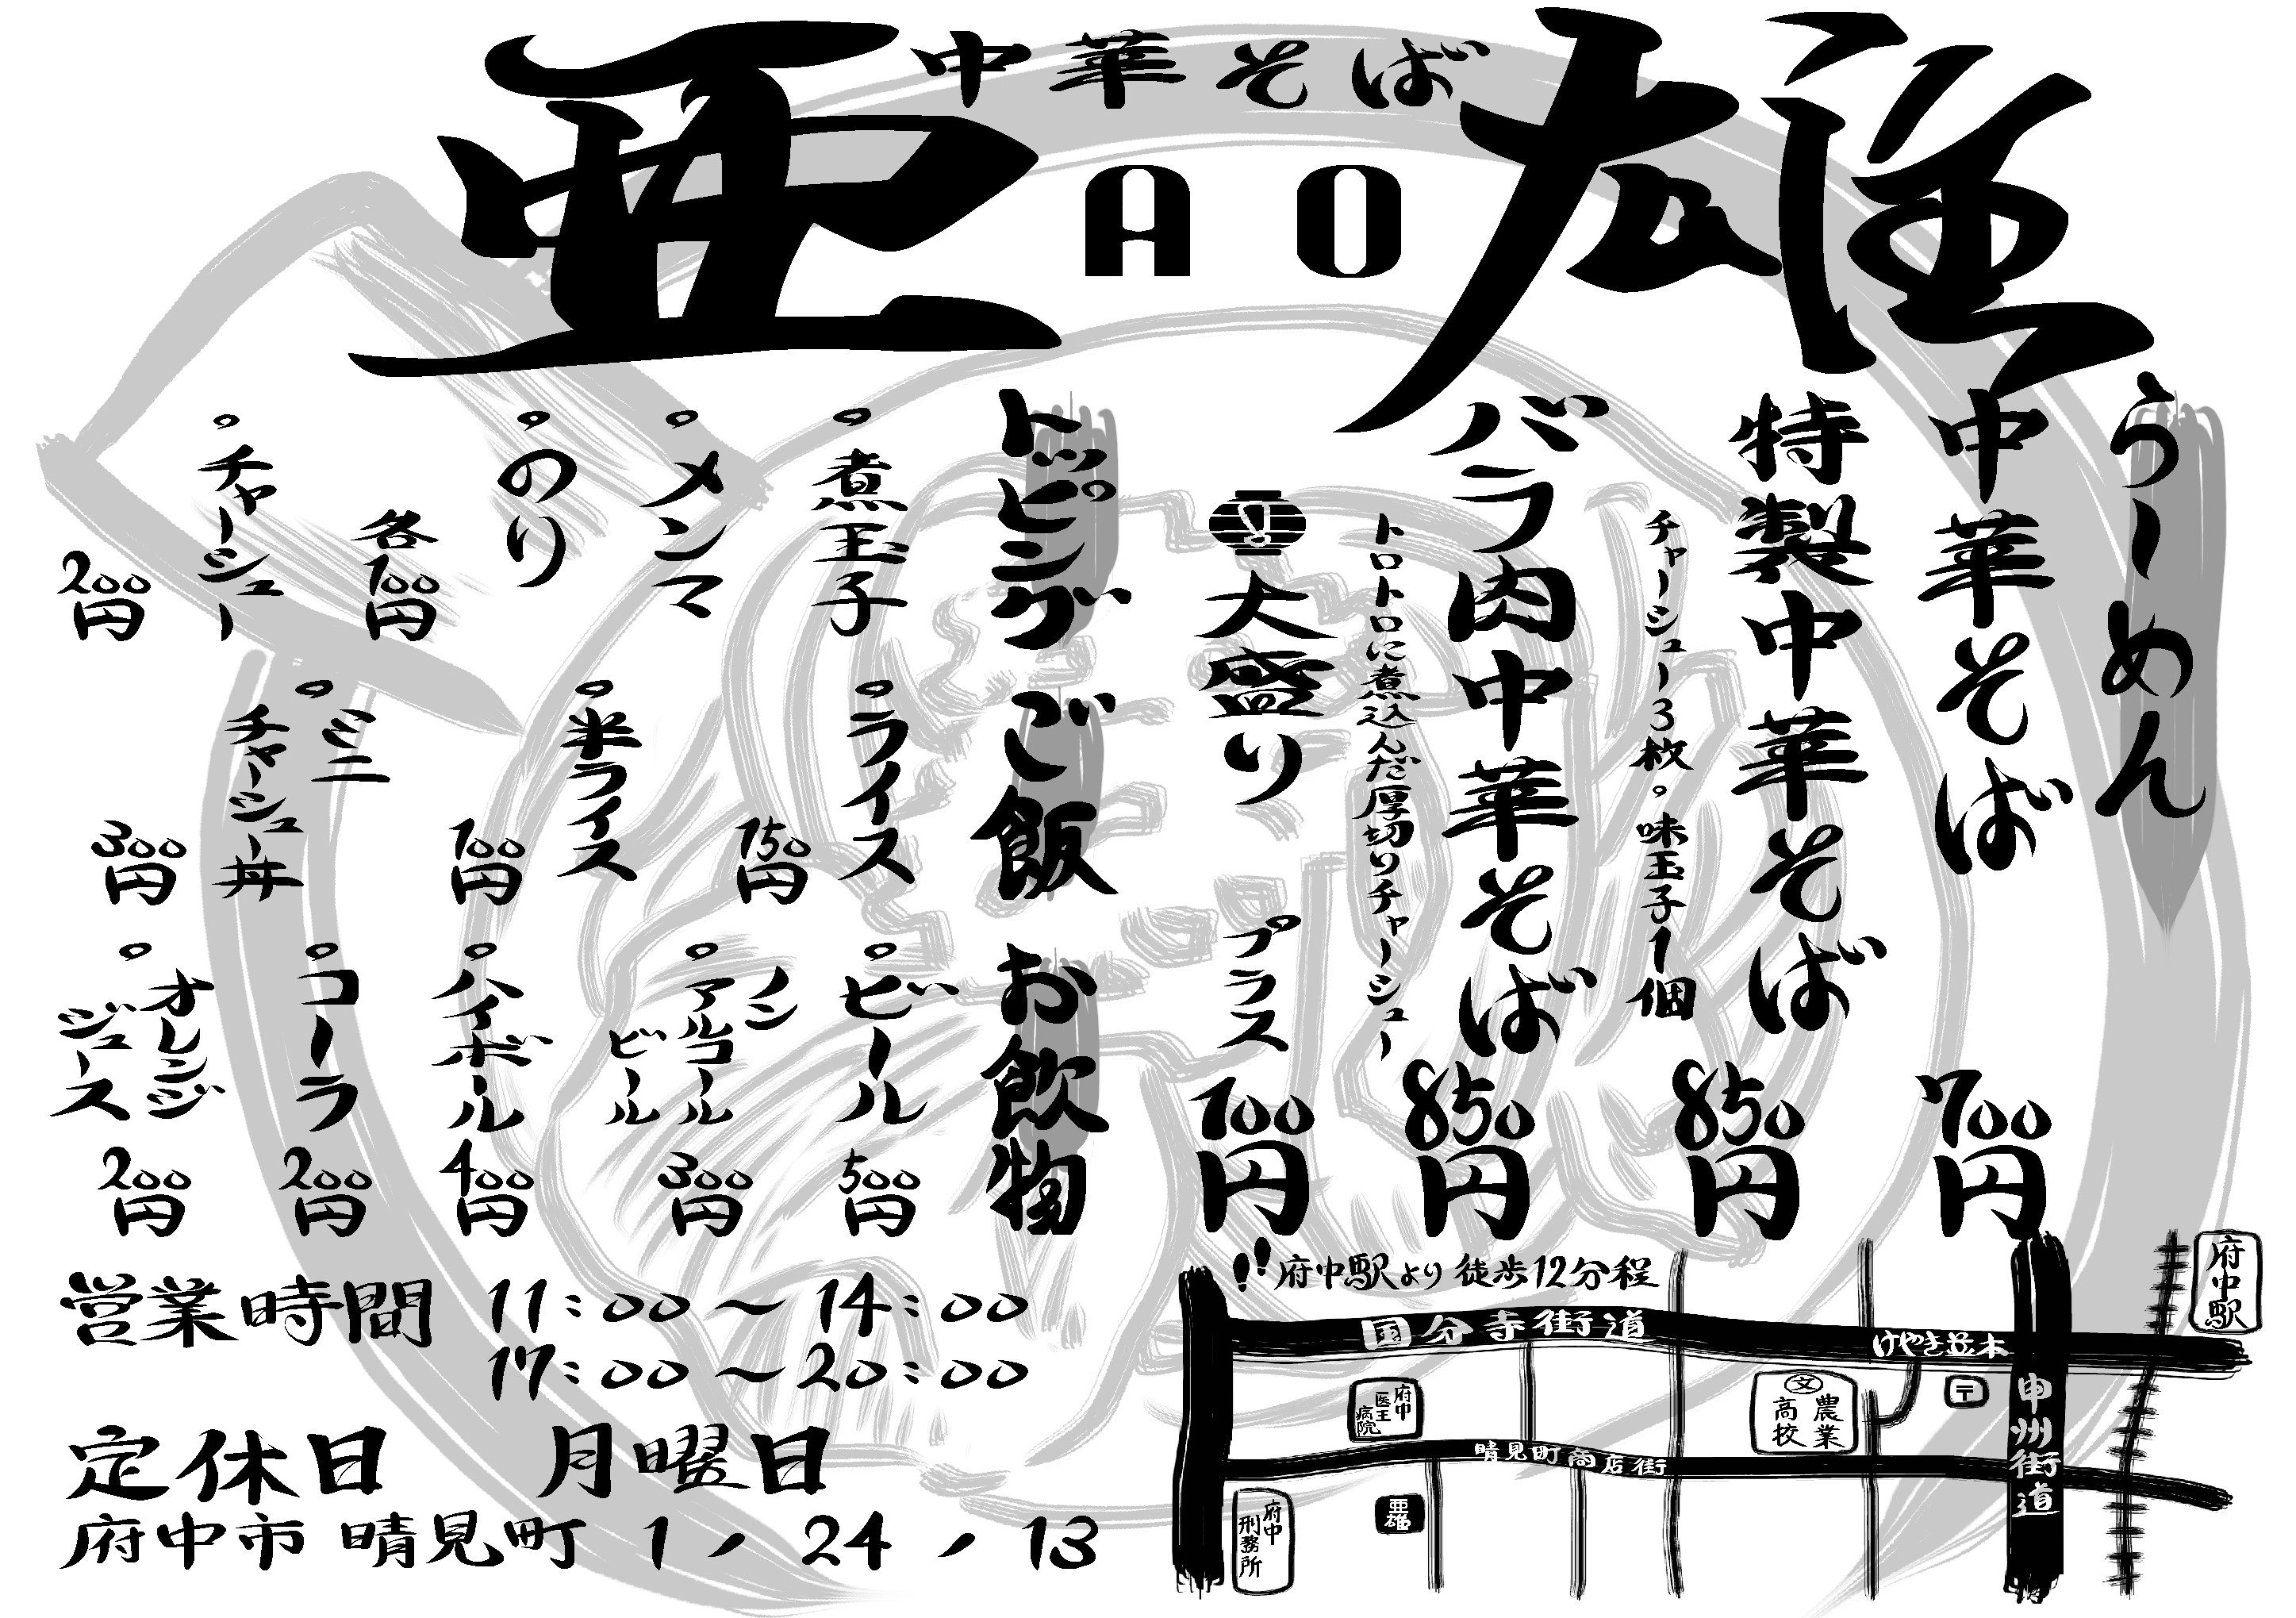 中華そば
亜雄
AO
らーめん
中華そば 700円
特製中華そば 850円
チャーシュー3枚。味玉子1個
バラ肉中華そば 850円
トロトロに煮込んだ厚切りチャーシュー
大盛り プラス 100円
トッピング
。煮玉子
。メンマ
。のり
各100円
。チャーシュー
200円
ご飯
。ライス
150円
。半ライス
100円
。ミニ
チャーシュー丼
300円
お飲物
。ビール
500円
。ノン
アルコール
ビール
300円
。ハイボール
400円
。コーラ
200円
。オレンジ
ジュース
200円
営業時間 11:00～14:00
17:00～20:00
定休日 月曜日
府中市 晴見町 1/24/13
!!府中駅より徒歩12分程
府中駅
国分寺街道
けやき並木
甲州街道
〒
文
農業
高校
府中
医王
病院
晴見町商店街
亜雄
府中
刑務所